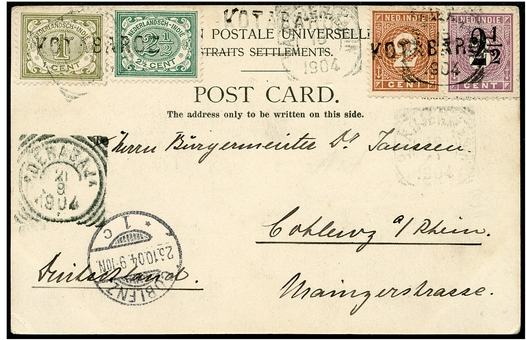 NEDERLANDSCH-INDIË
1
CENT
NEDERLANDSCH-INDIË
2½
2½ CENT
NED. INDIE
2
CENT
NED. INDIE
2½
CENT
KOTABAROE
KOTABARO
KOTABARO
1904
1904
N POSTALE UNIVERSELL
STRAITS SETTLEMENTS.
POST CARD.
The address only to be written on this side.
SOERABAJA
1904
1904
Herrn Bürgermeister Dr Janssen.
Coblenz a/Rhein.
Mainzerstrasse.
COBLENZ
1 c
23.10.04.9-10N